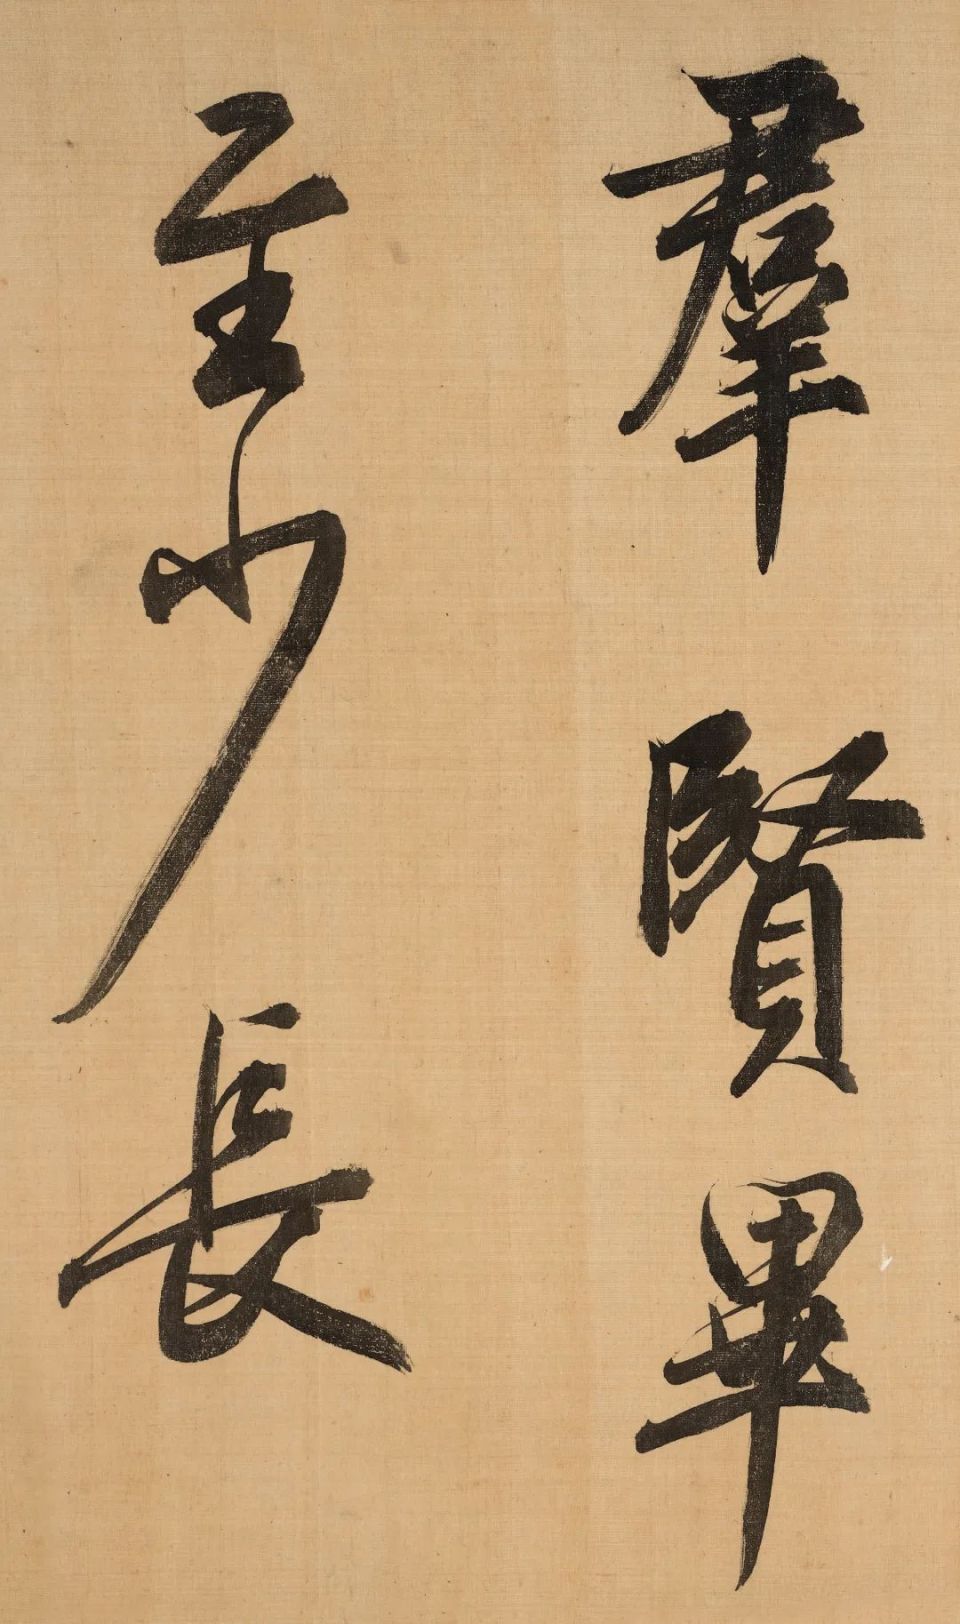 羣賢畢
至少長